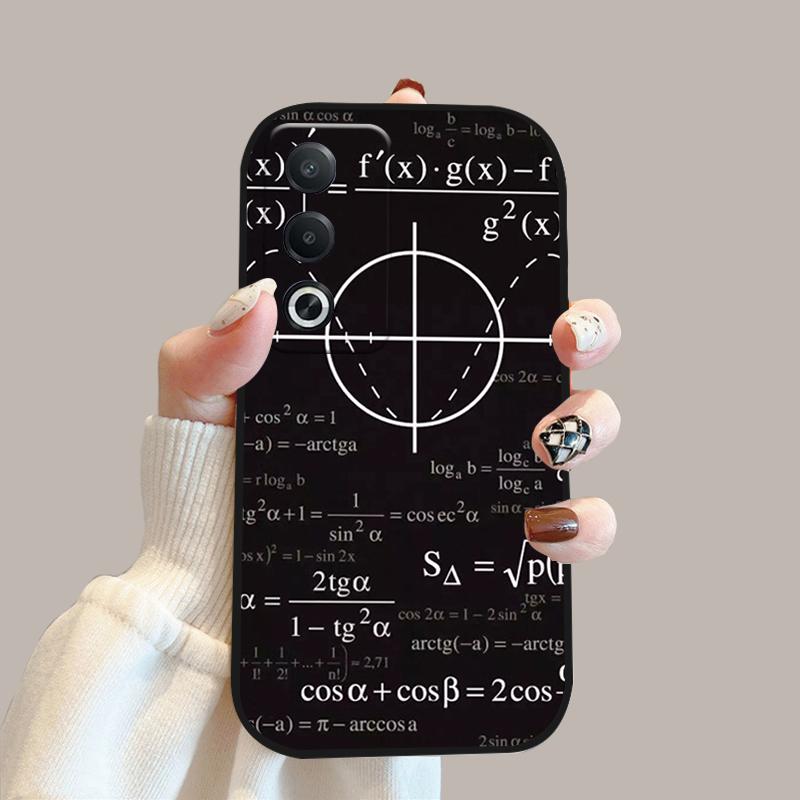 sin α cos α
logₐ b/c = logₐ b – lo
(x)/(x) = f′(x)·g(x) – f/g²(x)
cos 2α = c
+ cos² α = 1
–a) = –arctga
logₐ b = log꜀ b/log꜀ a
= r logₐ b
tg²α+1 = 1/sin² α = cosec²α
sin α
os x)² = 1 – sin 2x
S_Δ = √p(p
α = 2tgα/1 – tg²α
tgx =
cos 2α = 1 – 2 sin² α
arctg(–a) = –arctg
+ 1/1! + 1/2! + ... + 1/n!) = 2,71
cos α + cos β = 2cos
(–a) = π – arccos a
2 sin α